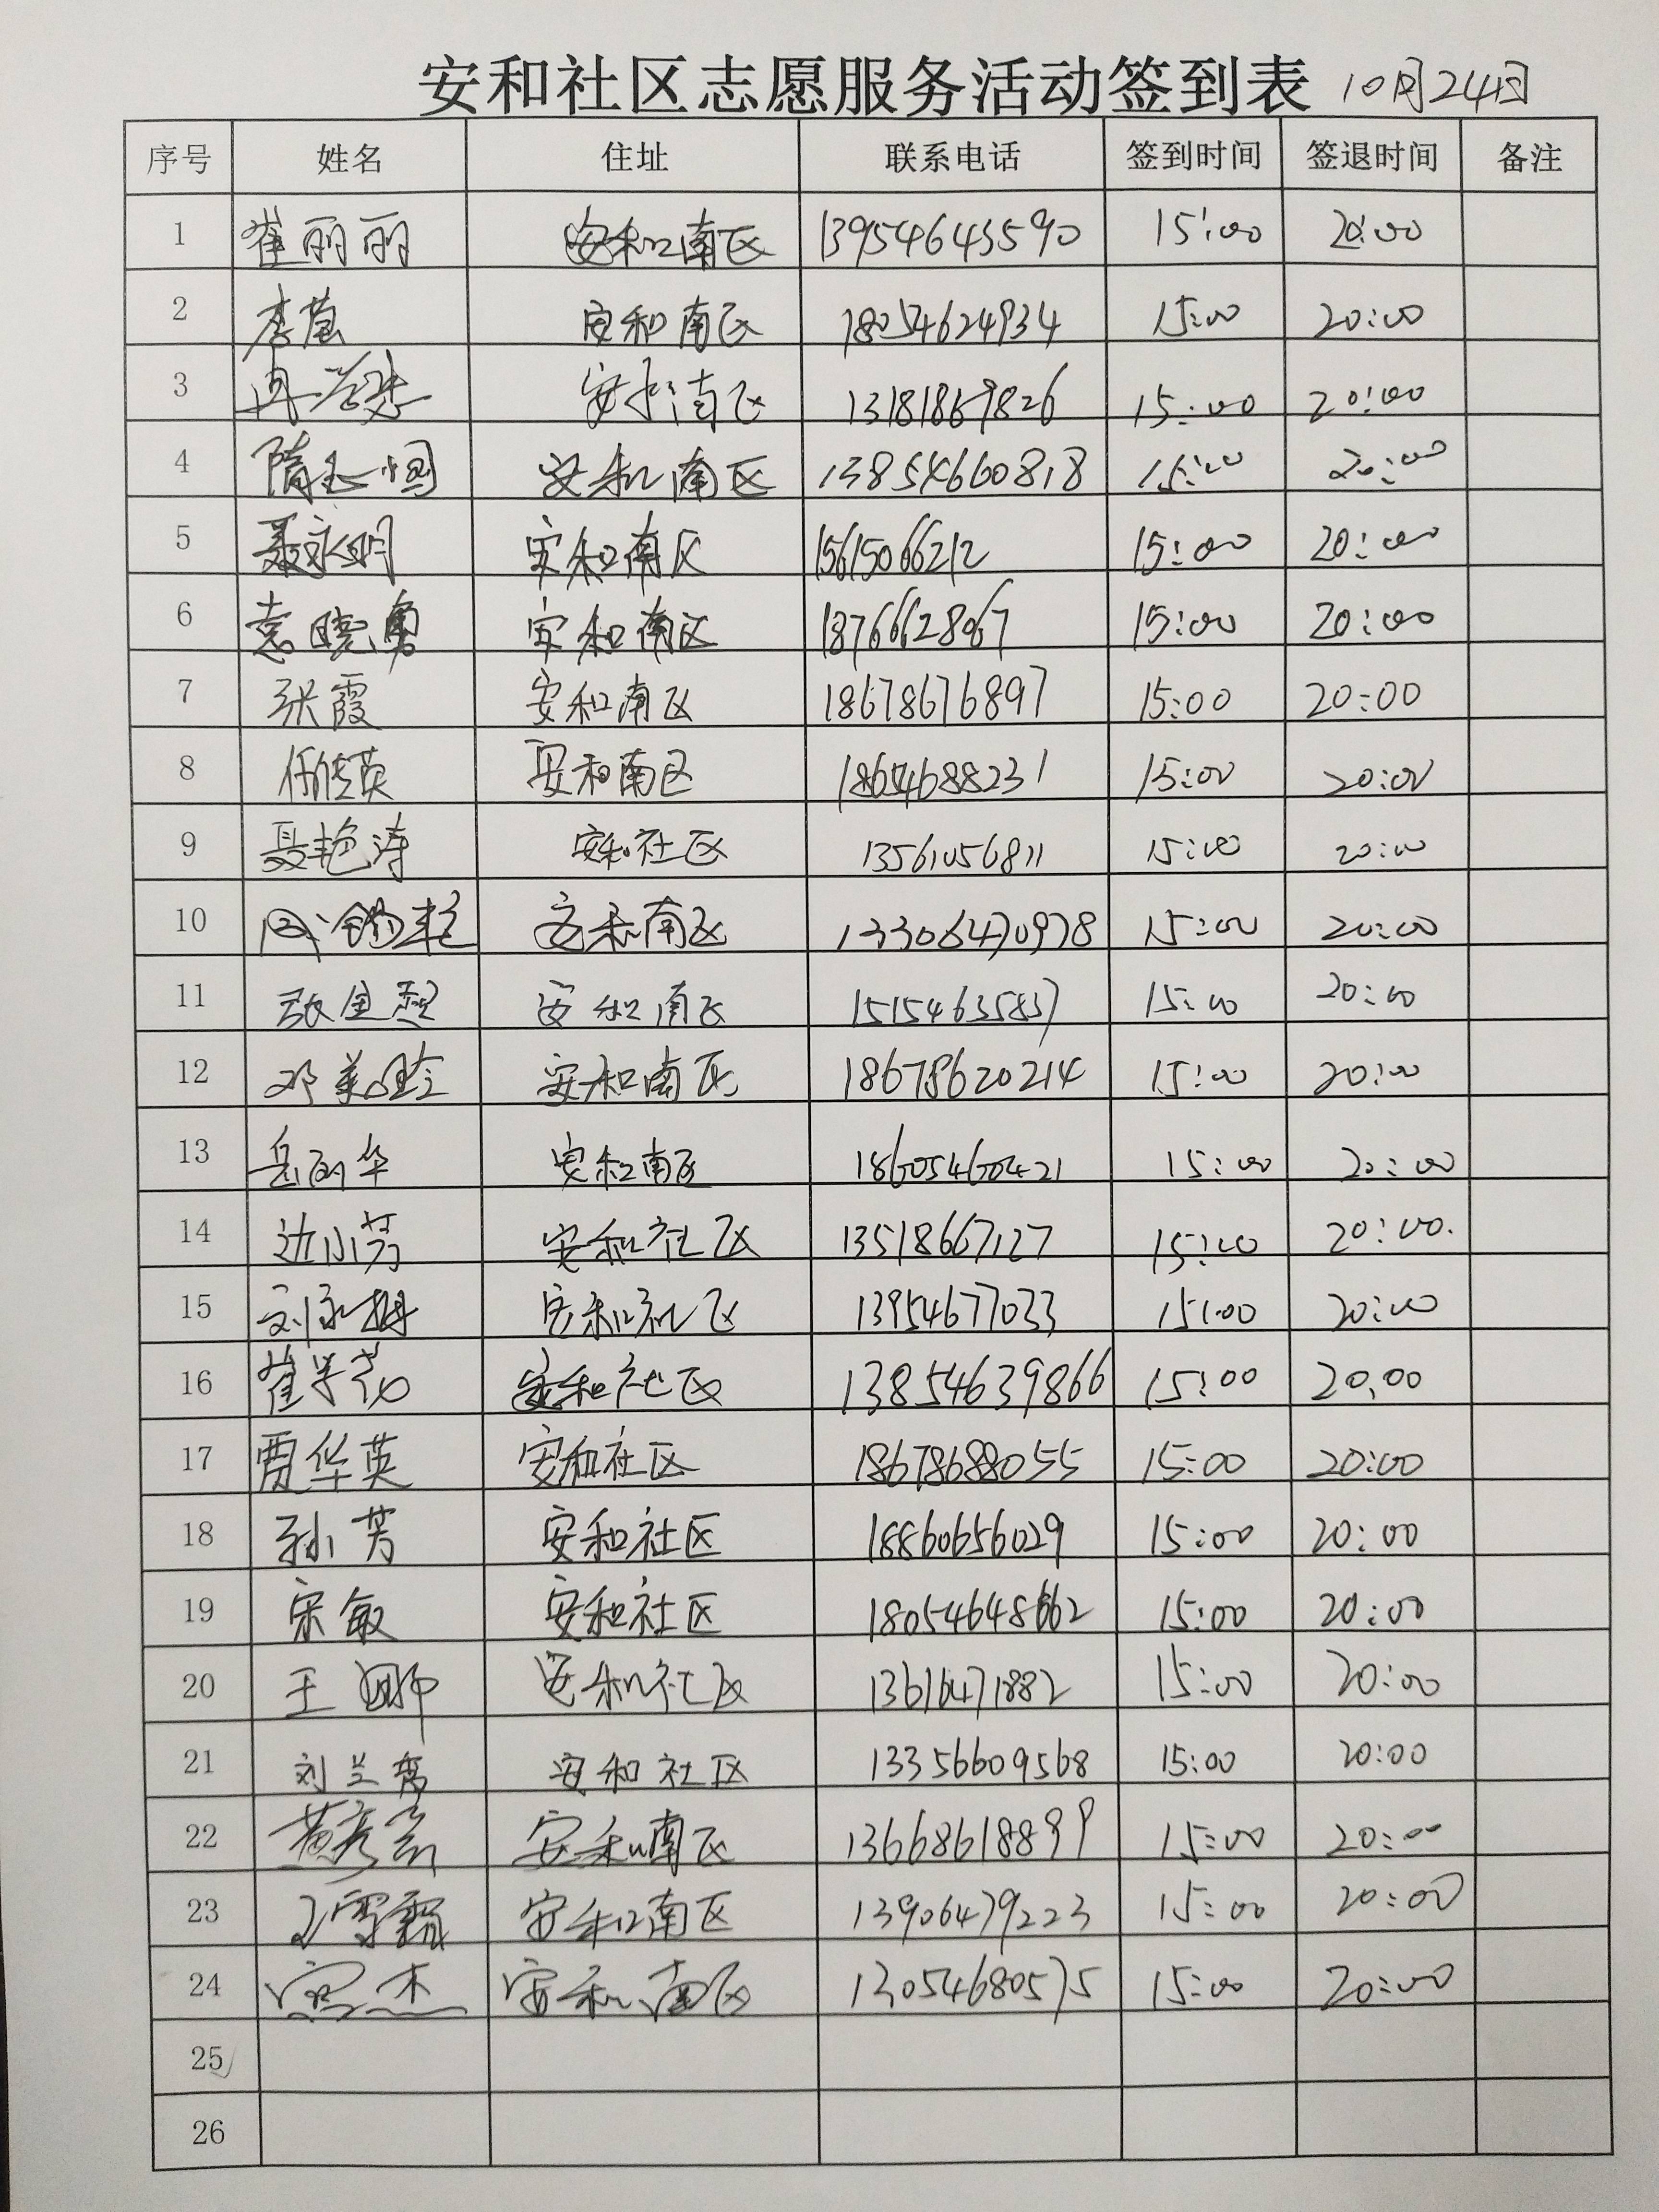 安和社区志愿服务活动签到表 10月24日
序号 姓名 住址 联系电话 签到时间 签退时间 备注
1 崔丽丽 安和南区 13954643590 15:00 20:00
2 李莹 安和南区 18054624934 15:00 20:00
3 安和南区 13181869826 15:00 20:00
4 安和南区 13854660818 15:00 20:00
5 聂永明 安和南区 15615066212 15:00 20:00
6 袁晓勇 安和南区 18766628067 15:00 20:00
7 张霞 安和南区 18678676897 15:00 20:00
8 任传英 安和南区 18654688231 15:00 20:00
9 聂艳涛 安和社区 13561056811 15:00 20:00
10 安和南区 13306470978 15:00 20:00
11 安和南区 15154635837 15:00 20:00
12 邓美玲 安和南区 18678620214 15:00 20:00
13 岳丽华 安和南区 18605460421 15:00 20:00
14 边小芳 安和社区 13518667127 15:00 20:00.
15 刘永梅 安和社区 13954677033 15:00 20:00
16 崔学花 安和社区 13854639866 15:00 20:00
17 贾华英 安和社区 18678688055 15:00 20:00
18 孙芳 安和社区 18860656029 15:00 20:00
19 宋敏 安和社区 18054648662 15:00 20:00
20 王娜 安和社区 13616471882 15:00 20:00
21 刘兰秀 安和社区 13356609568 15:00 20:00
22 安和南区 13668618899 15:00 20:00
23 安和南区 13906479223 15:00 20:00
24 宫杰 安和南区 13054680575 15:00 20:00
25
26